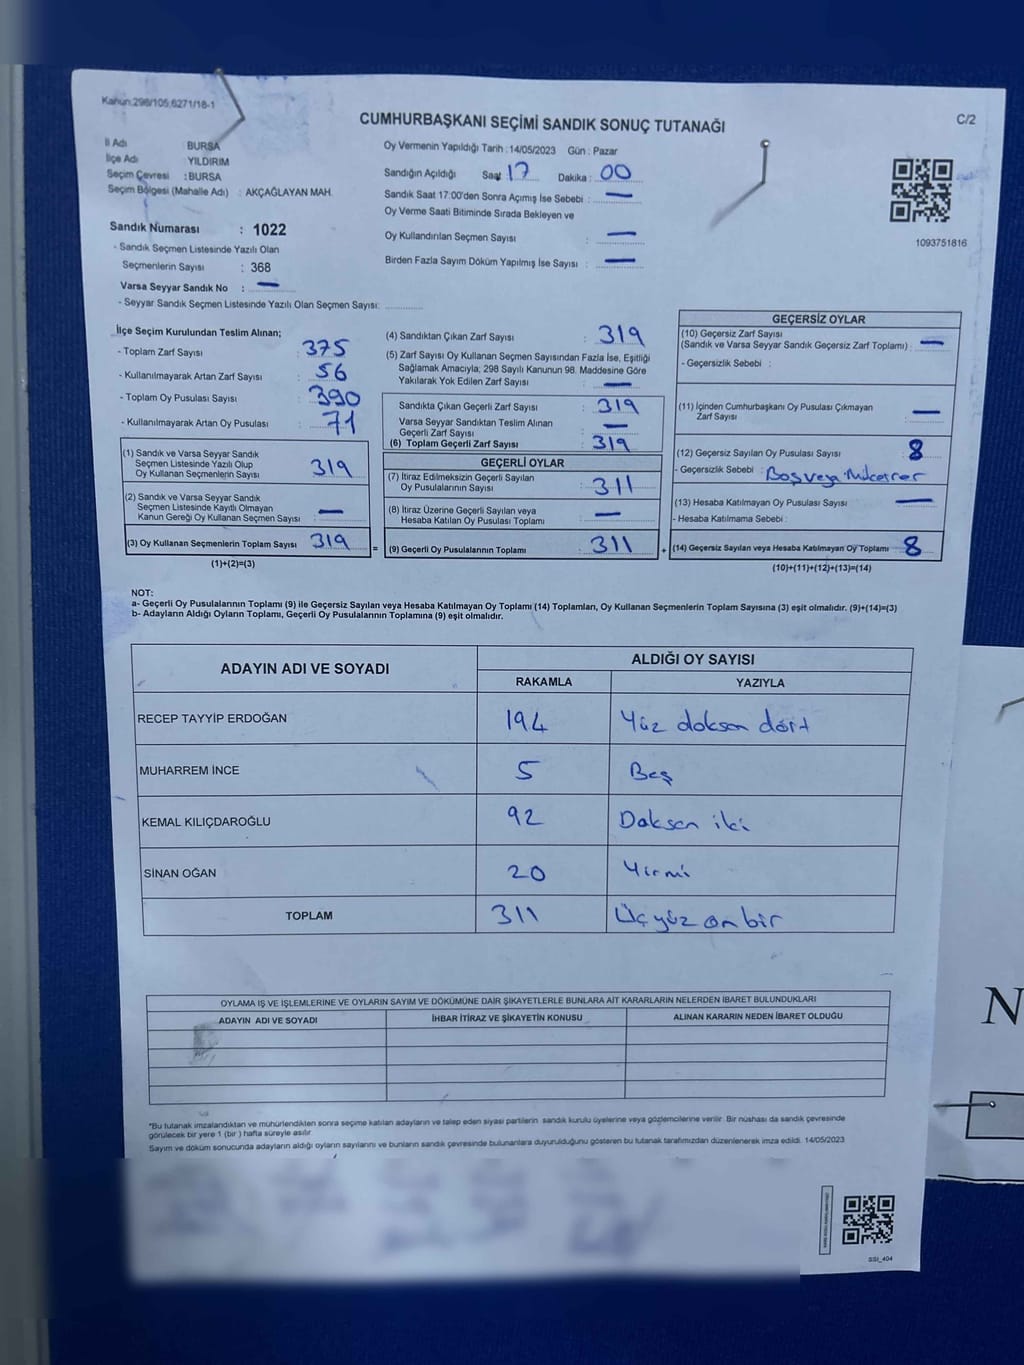 Kanun:298/105,6271/18-1
C/2
CUMHURBAŞKANI SEÇİMİ SANDIK SONUÇ TUTANAĞI
İl Adı BURSA
İlçe Adı YILDIRIM
Seçim Çevresi :BURSA
Seçim Bölgesi (Mahalle Adı) : AKÇAĞLAYAN MAH.
Sandık Numarası : 1022
- Sandık Seçmen Listesinde Yazılı Olan
Seçmenlerin Sayısı : 368
Varsa Seyyar Sandık No : —
- Seyyar Sandık Seçmen Listesinde Yazılı Olan Seçmen Sayısı:
Oy Vermenin Yapıldığı Tarih :14/05/2023 Gün : Pazar
Sandığın Açıldığı Saat 17 Dakika : 00
Sandık Saat 17:00'den Sonra Açımış İse Sebebi : —
Oy Verme Saati Bitiminde Sırada Bekleyen ve
Oy Kullandırılan Seçmen Sayısı : —
Birden Fazla Sayım Döküm Yapılmış İse Sayısı : —
1093751816
İlçe Seçim Kurulundan Teslim Alınan;
- Toplam Zarf Sayısı : 375
- Kullanılmayarak Artan Zarf Sayısı : 56
- Toplam Oy Pusulası Sayısı : 390
- Kullanılmayarak Artan Oy Pusulası : 71
(1) Sandık ve Varsa Seyyar Sandık
Seçmen Listesinde Yazılı Olup
Oy Kullanan Seçmenlerin Sayısı : 319
(2) Sandık ve Varsa Seyyar Sandık
Seçmen Listesinde Kayıtlı Olmayan
Kanun Gereği Oy Kullanan Seçmen Sayısı : —
(3) Oy Kullanan Seçmenlerin Toplam Sayısı : 319
(1)+(2)=(3)
=
(4) Sandıktan Çıkan Zarf Sayısı : 319
(5) Zarf Sayısı Oy Kullanan Seçmen Sayısından Fazla İse, Eşitliği
Sağlamak Amacıyla; 298 Sayılı Kanunun 98. Maddesine Göre
Yakılarak Yok Edilen Zarf Sayısı : —
Sandıkta Çıkan Geçerli Zarf Sayısı : 319
Varsa Seyyar Sandıktan Teslim Alınan
Geçerli Zarf Sayısı : —
(6) Toplam Geçerli Zarf Sayısı : 319
GEÇERLİ OYLAR
(7) İtiraz Edilmeksizin Geçerli Sayılan
Oy Pusulalarının Sayısı : 311
(8) İtiraz Üzerine Geçerli Sayılan veya
Hesaba Katılan Oy Pusulası Toplamı : —
(9) Geçerli Oy Pusulalarının Toplamı : 311
+
GEÇERSİZ OYLAR
(10) Geçersiz Zarf Sayısı
(Sandık ve Varsa Seyyar Sandık Geçersiz Zarf Toplamı) : —
- Geçersizlik Sebebi :
(11) İçinden Cumhurbaşkanı Oy Pusulası Çıkmayan
Zarf Sayısı : —
(12) Geçersiz Sayılan Oy Pusulası Sayısı : 8
- Geçersizlik Sebebi : Boş veya
(13) Hesaba Katılmayan Oy Pusulası Sayısı : —
- Hesaba Katılmama Sebebi :
(14) Geçersiz Sayılan veya Hesaba Katılmayan Oy Toplamı : 8
(10)+(11)+(12)+(13)=(14)
NOT:
a- Geçerli Oy Pusulalarının Toplamı (9) ile Geçersiz Sayılan veya Hesaba Katılmayan Oy Toplamı (14) Toplamları, Oy Kullanan Seçmenlerin Toplam Sayısına (3) eşit olmalıdır. (9)+(14)=(3)
b- Adayların Aldığı Oyların Toplamı, Geçerli Oy Pusulalarının Toplamına (9) eşit olmalıdır.
ADAYIN ADI VE SOYADI ALDIĞI OY SAYISI
RAKAMLA YAZIYLA
RECEP TAYYİP ERDOĞAN 194 Yüz doksan dört
MUHARREM İNCE 5 Beş
KEMAL KILIÇDAROĞLU 92 Doksan iki
SİNAN OĞAN 20 Yirmi
TOPLAM 311 Üç yüz on bir
OYLAMA İŞ VE İŞLEMLERİNE VE OYLARIN SAYIM VE DÖKÜMÜNE DAİR ŞİKAYETLERLE BUNLARA AİT KARARLARIN NELERDEN İBARET BULUNDUKLARI
ADAYIN ADI VE SOYADI İHBAR İTİRAZ VE ŞİKAYETİN KONUSU ALINAN KARARIN NEDEN İBARET OLDUĞU
*Bu tutanak imzalandıktan ve mühürlendikten sonra seçime katılan adayların ve talep eden siyasi partilerin sandık kurulu üyelerine veya gözlemcilerine verilir. Bir nüshası da sandık çevresinde
görülecek bir yere 1 (bir ) hafta süreyle asılır.
Sayım ve döküm sonucunda adayların aldığı oyların sayılarını ve bunların sandık çevresinde bulunanlara duyurulduğunu gösteren bu tutanak tarafımızdan düzenlenerek imza edildi. 14/05/2023
SSI_404
N